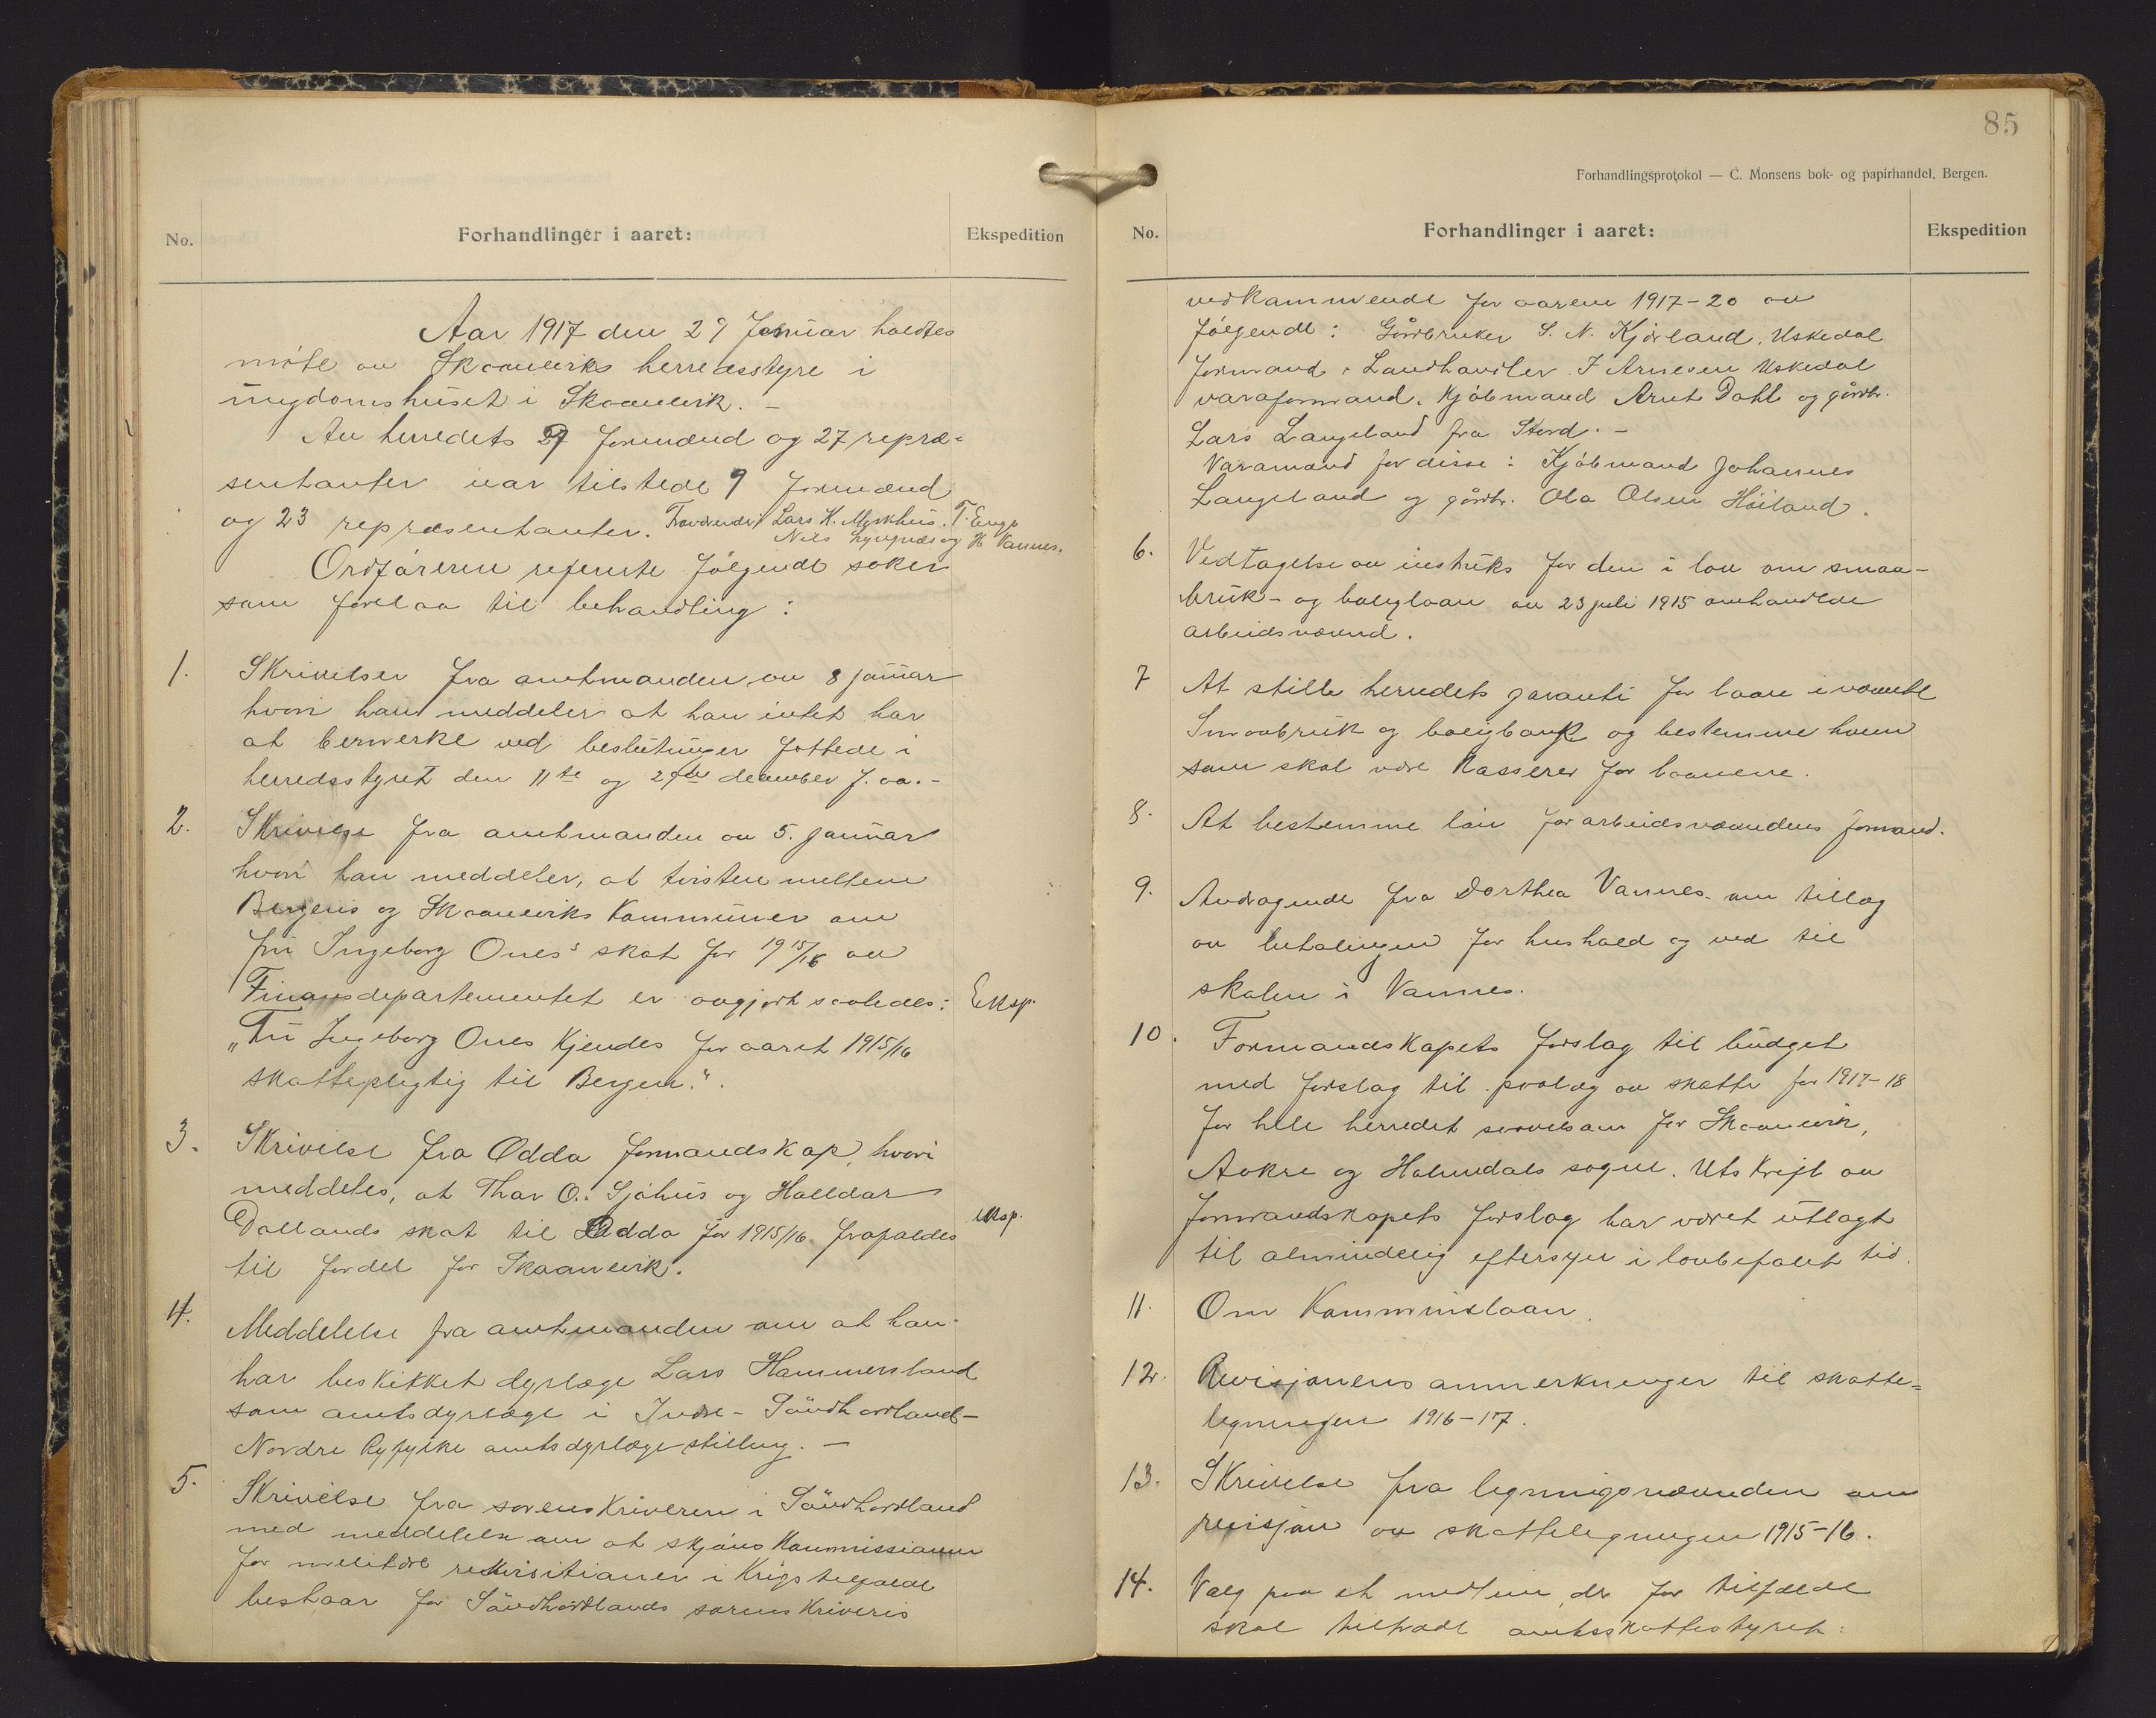 No.
Forhandlinger i aaret:
Ekspedition
Aar 1917 den 29 Januar holdtes
møte av Skaaneviks herredsstyre i
ungdomshuset i Skaanevik. –
Av herredets 9 formænd og 27 repræ-
sentanter var tilstede 9 formænd
og 23 repræsentanter. Fraværende: Lars K. Mørkhus. T. Enge
Nils og H Vannes.
Ordføreren refererte følgende saker
som forelaa til behandling:
1. Skrivelser fra amtmanden av 8 januar
hvori han meddeler at han intet har
at bemerke ved beslutninger fattede i
herredsstyret den 11te og 27de december f. aa. –
2. Skrivelse fra amtmanden av 5. januar
hvori han meddeler, at tvisten mellem
Bergens og Skaaneviks kommuner om
fru Ingeborg Ones's skat for 1915/16 av
Finansdepartementet er avgjort saaledes: Eksp.
„Fru Ingeborg Ones kjendes for aaret 1915/16
skattepligtig til Bergen.“.
3. Skrivelse fra Odda formandskap, hvori
meddeles, at Thor O. Sjøhus og Halldor
Dallands skat til Odda for 1915/16 frafaldes eksp.
til fordel for Skaanevik.
4. Meddelelse fra amtmanden om at han
har beskikket dyrlæge Lars Hammersland
som amtsdyrlæge i Indre-Søndhordland-
Nordre Ryfylke amtsdyrlægestilling. –
5. Skrivelse fra sorenskriveren i Søndhordland
med meddelelse om at skjønskommissionen
for militære rekvisitioner i krigstilfælde
bestaar for Søndhordlands sorenskriveris
85
Forhandlingsprotokol — C. Monsens bok- og papirhandel, Bergen.
No.
Forhandlinger i aaret:
Ekspedition
vedkommende for aarene 1917-20 av
følgende: Gårdbruker S. N. Kjærland, Uskedal
formand, Landhandler I Arnesen Uskedal
varaformand, Kjøbmand Arnt Dahl og gårdbr.
Lars Langeland fra Stord. –
Varamænd for disse: Kjøbmand Johannes
Langeland og gårdbr. Ola Olsen Høiland.
6. Vedtagelse av instruks for den i lov om smaa-
bruk- og boliglaan av 23 juli 1915 omhandlede
arbeidsnævnd.
7 At stille herredets garanti for laan i nævnte
Smaabruk og boligbank og bestemme hvem
som skal være kasserer for laanene.
8. At bestemme løn for arbeidsnævndens formand.
9. Andragende fra Dorthea Vannes om tillæg
av betalingen for hushold og ved til
skolen i Vannes.
10. Formandskapets forslag til budget
med forslag til paalæg av skatte for 1917-18
for hele herredet saavelsom for Skaanevik,
Aakre og Holmedals sogne. Utskrift av
formandskapets forslag har været utlagt
til almindelig eftersyn i lovbefalet tid.
11. Om Kommunelaan.
12. Revisjonens anmerkninger til skatte-
ligningen 1916-17.
13. Skrivelse fra ligningsnævnden om
revisjon av skatteligningen 1915-16.
14. Valg paa et medlem, der for tilfælde
skal tiltræde amtsskattestyret: